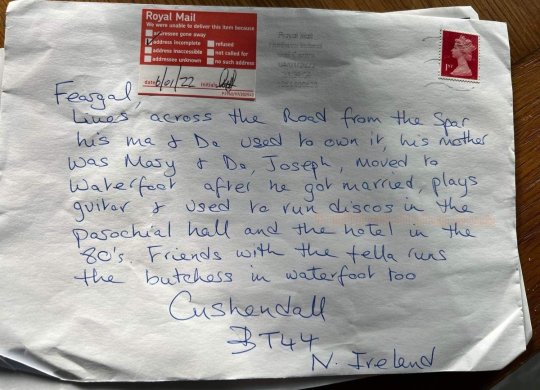 Royal Mail
We were unable to deliver this item because
addressee gone away
address incomplete
refused
address inaccessible
not called for
addressee unknown
no such address
date 6/01/22 initials
Royal Mail
1ST
Feargal,
Lives across the Road from the Spar
his ma & Da used to own it, his mother
was Mary & Da, Joseph, moved to
Waterfoot after he got married, plays
guitar & used to run discos in the
parochial hall and the hotel in the
80's. Friends with the fella runs
the butchers in waterfoot too
Cushendall
BT44
N. Ireland